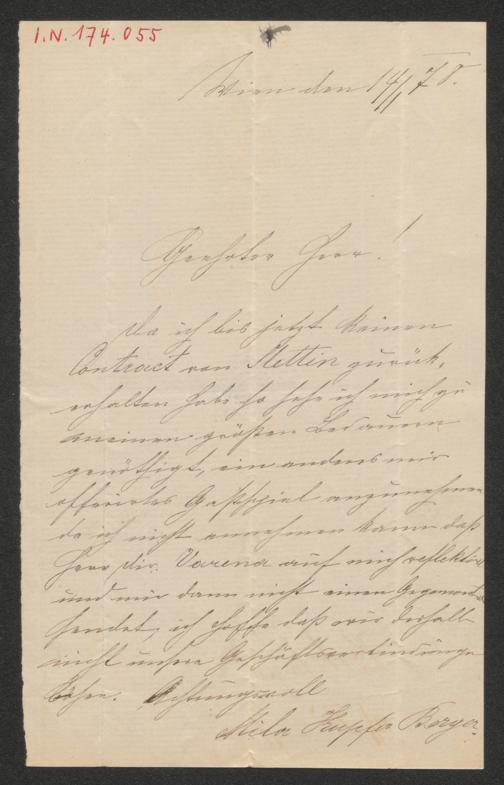 I.N. 174.055
Wien den 14/1 78.
Geehrter Herr!
Da ich bis jetzt keinen
Contract von Stettin zurück,
erhalten habe so sehe ich mich zu
meinen größten Bedauern
genöthigt, ein anderes mir
offerirtes Gastspiel anzunehmen
da ich nicht annehmen kann daß
Herr Dir. Varena auf mich reflektirt
und mir dann nicht einen
sendet, ich hoffe daß wir deshalb
nicht unsere Geschäftsverbindung
Achtungsvoll
Mila Kupfer Berger